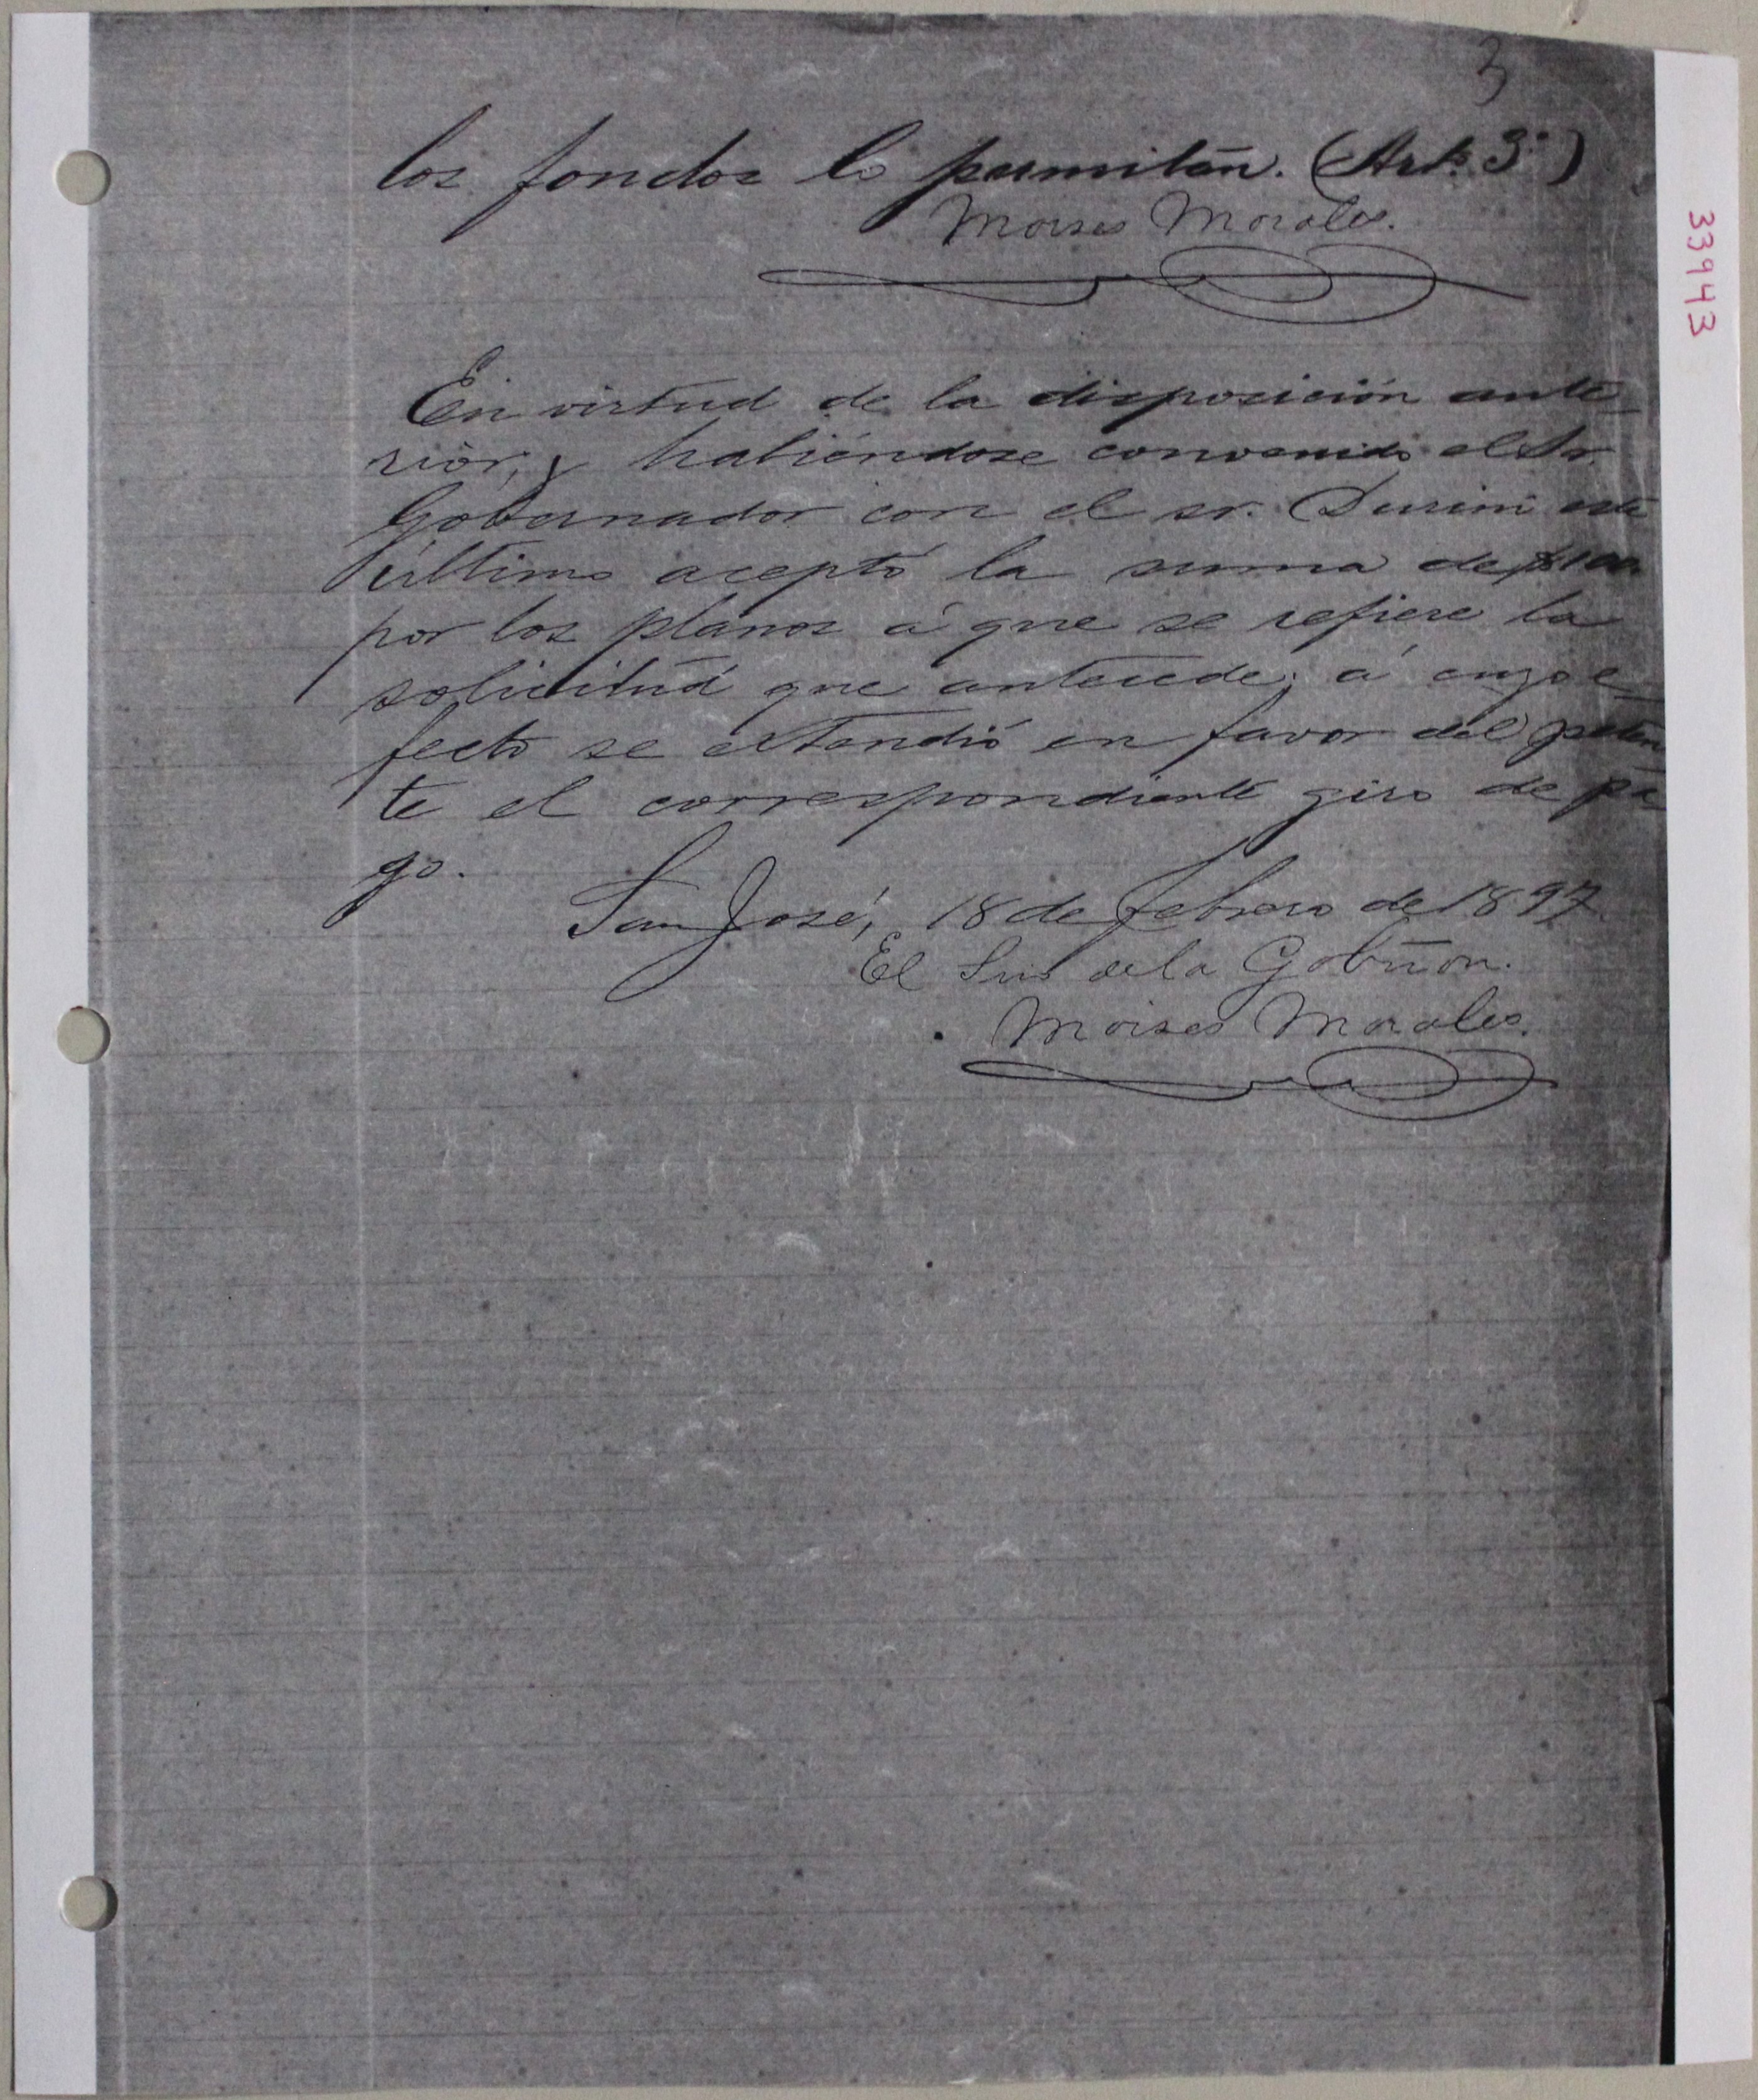 3
los fondos lo permitan. (Art. 3°)
Moises Morales.
33943
En virtud de la disposición ante
rior, y habiéndose convenido el Sr.
Gobernador con el sr. Durini este
último aceptó la suma de $100
por los planos á que se refiere la
solicitud que antecede; á cuyo e
fecto se extendió en favor del peten
te el correspondiente giro de pa
go.
San José, 18 de febrero de 1897
El Srio de la Gobñon.
Moises Morales.